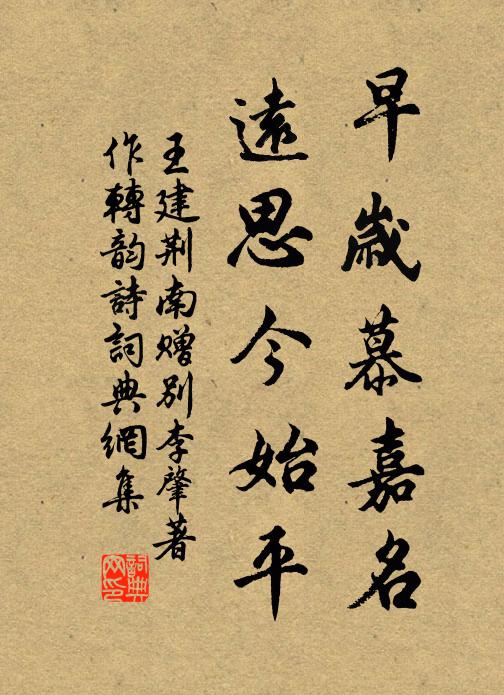 早歲慕嘉名
遠思今始平
王建荆南贈別李肇著
作轉韵詩詞典網集
詞典网印